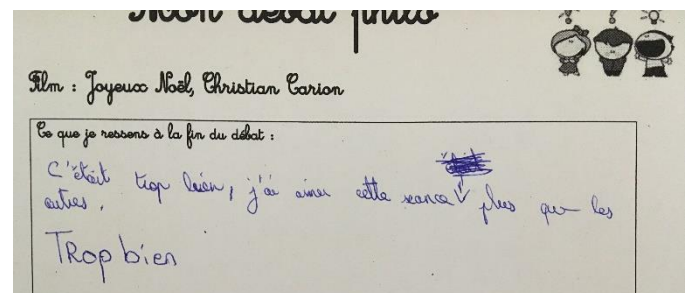 Mon débat philo
Film : Joyeux Noël, Christian Carion
Ce que je ressens à la fin du débat :
C'était trop bien, j'ai aimer cette seance plus que les
autres.
TRop bien